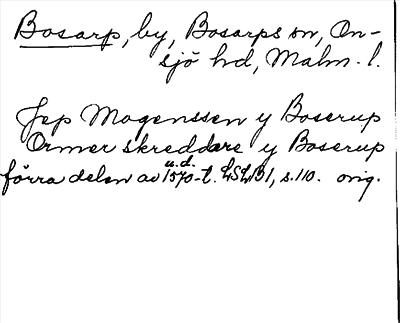 Bosarp, by, Bosarps sn, On-
sjö hd, Malm. l.
Jep Mogenssen y Boserup
Ormer skreddere y Boserup
u.d.
förra delen av 1570-t. LSLB1, s.110. orig.